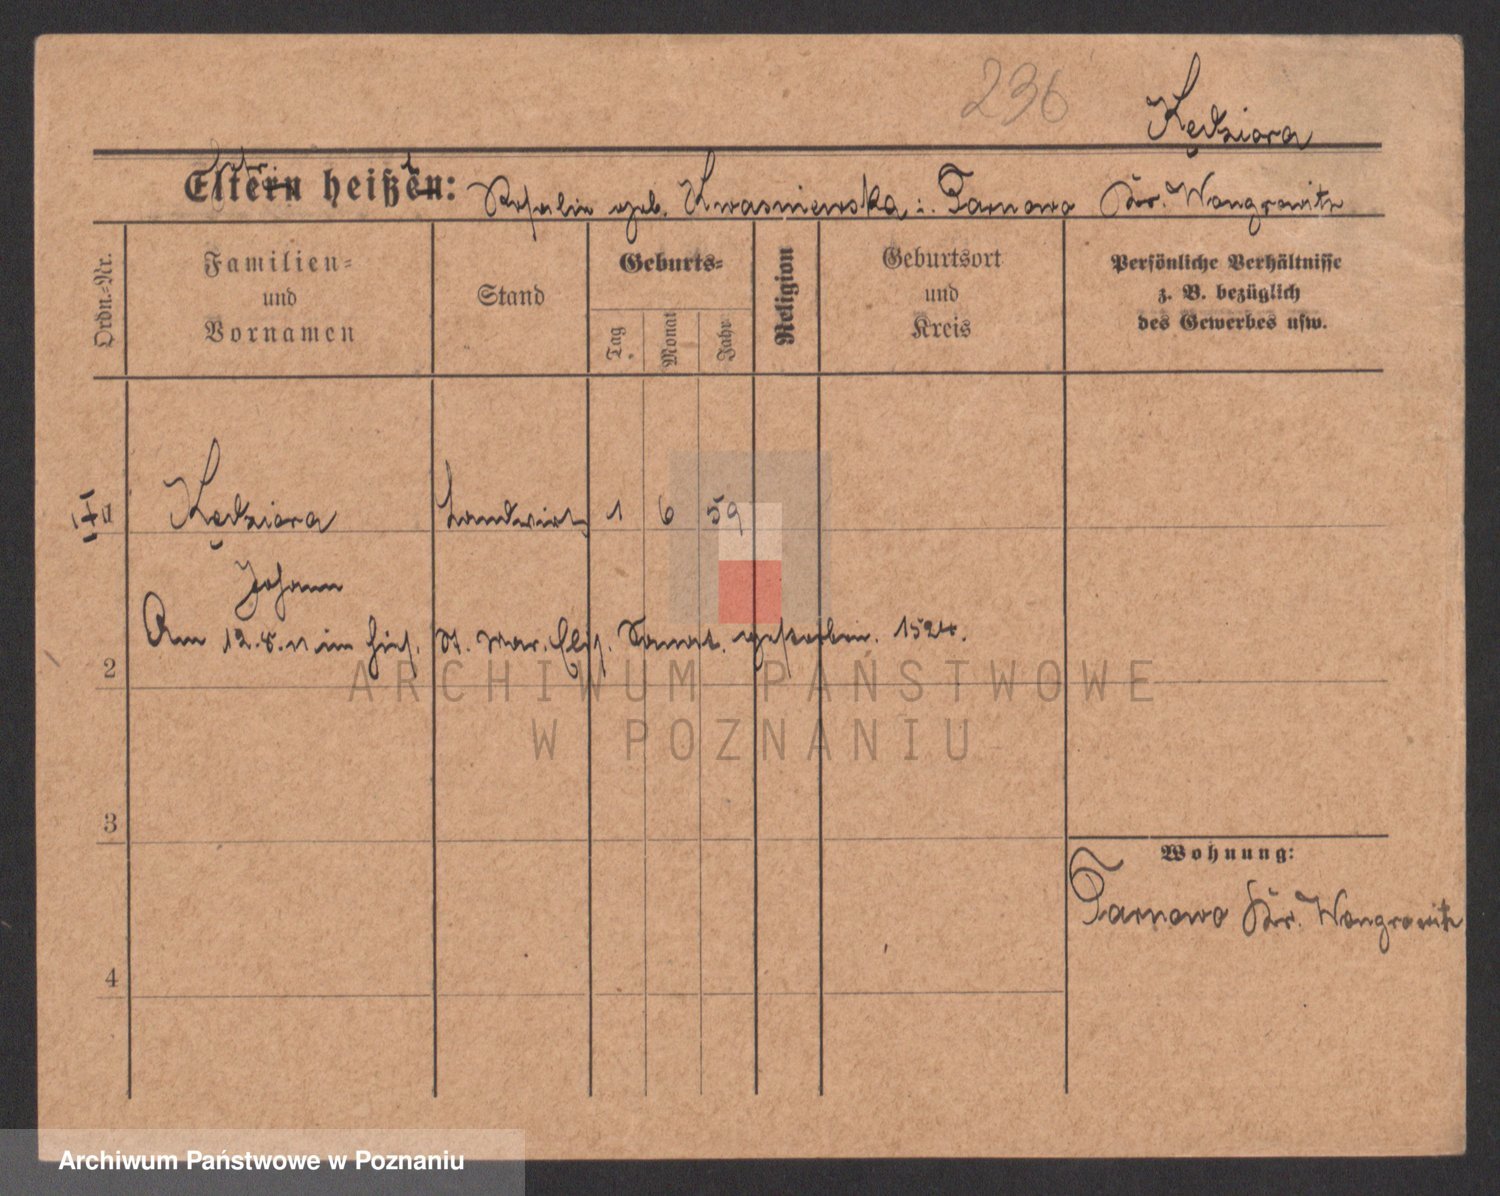 236
Kędziora
Eltern heißen: Rosalie geb. Kwasniewska i. Tarnowo Kr. Wongrowitz
Ordn.-Nr.
Familien-
und
Vornamen
Stand
Geburts-
Tag
Monat
Jahr
Religion
Geburtsort
und
Kreis
Persönliche Verhältnisse
z. B. bezüglich
des Gewerbes usw.
1 Kędziora Landwirt 1 6 59
Johann
Am 12.8.11 im hies. St. Mar. Elis. gestorben. 1524.
2
3
4
Wohnung:
Tarnowo Kr. Wongrowitz
ARCHIWUM PAŃSTWOWE
W POZNANIU
Archiwum Państwowe w Poznaniu